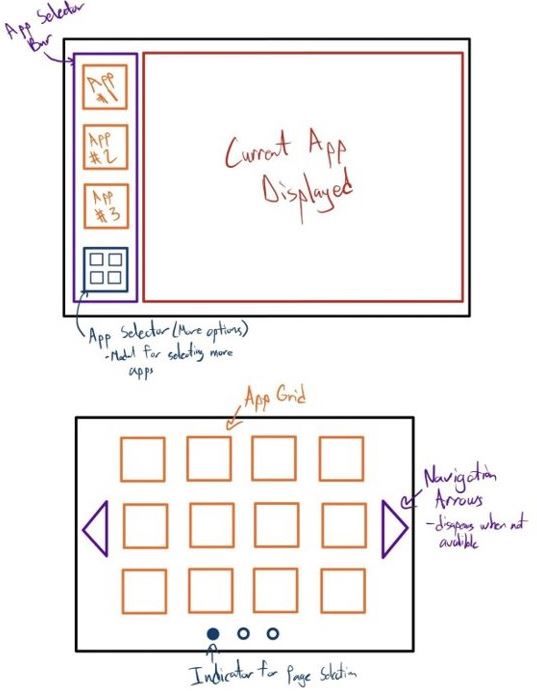 App Selector
Bar
App
#1
App
#2
App
#3
Current App
Displayed
App Selector (More options)
-Modal for selecting more
apps
App Grid
Navigation
Arrows
-disapears when not
availible
Indicator for Page Selection